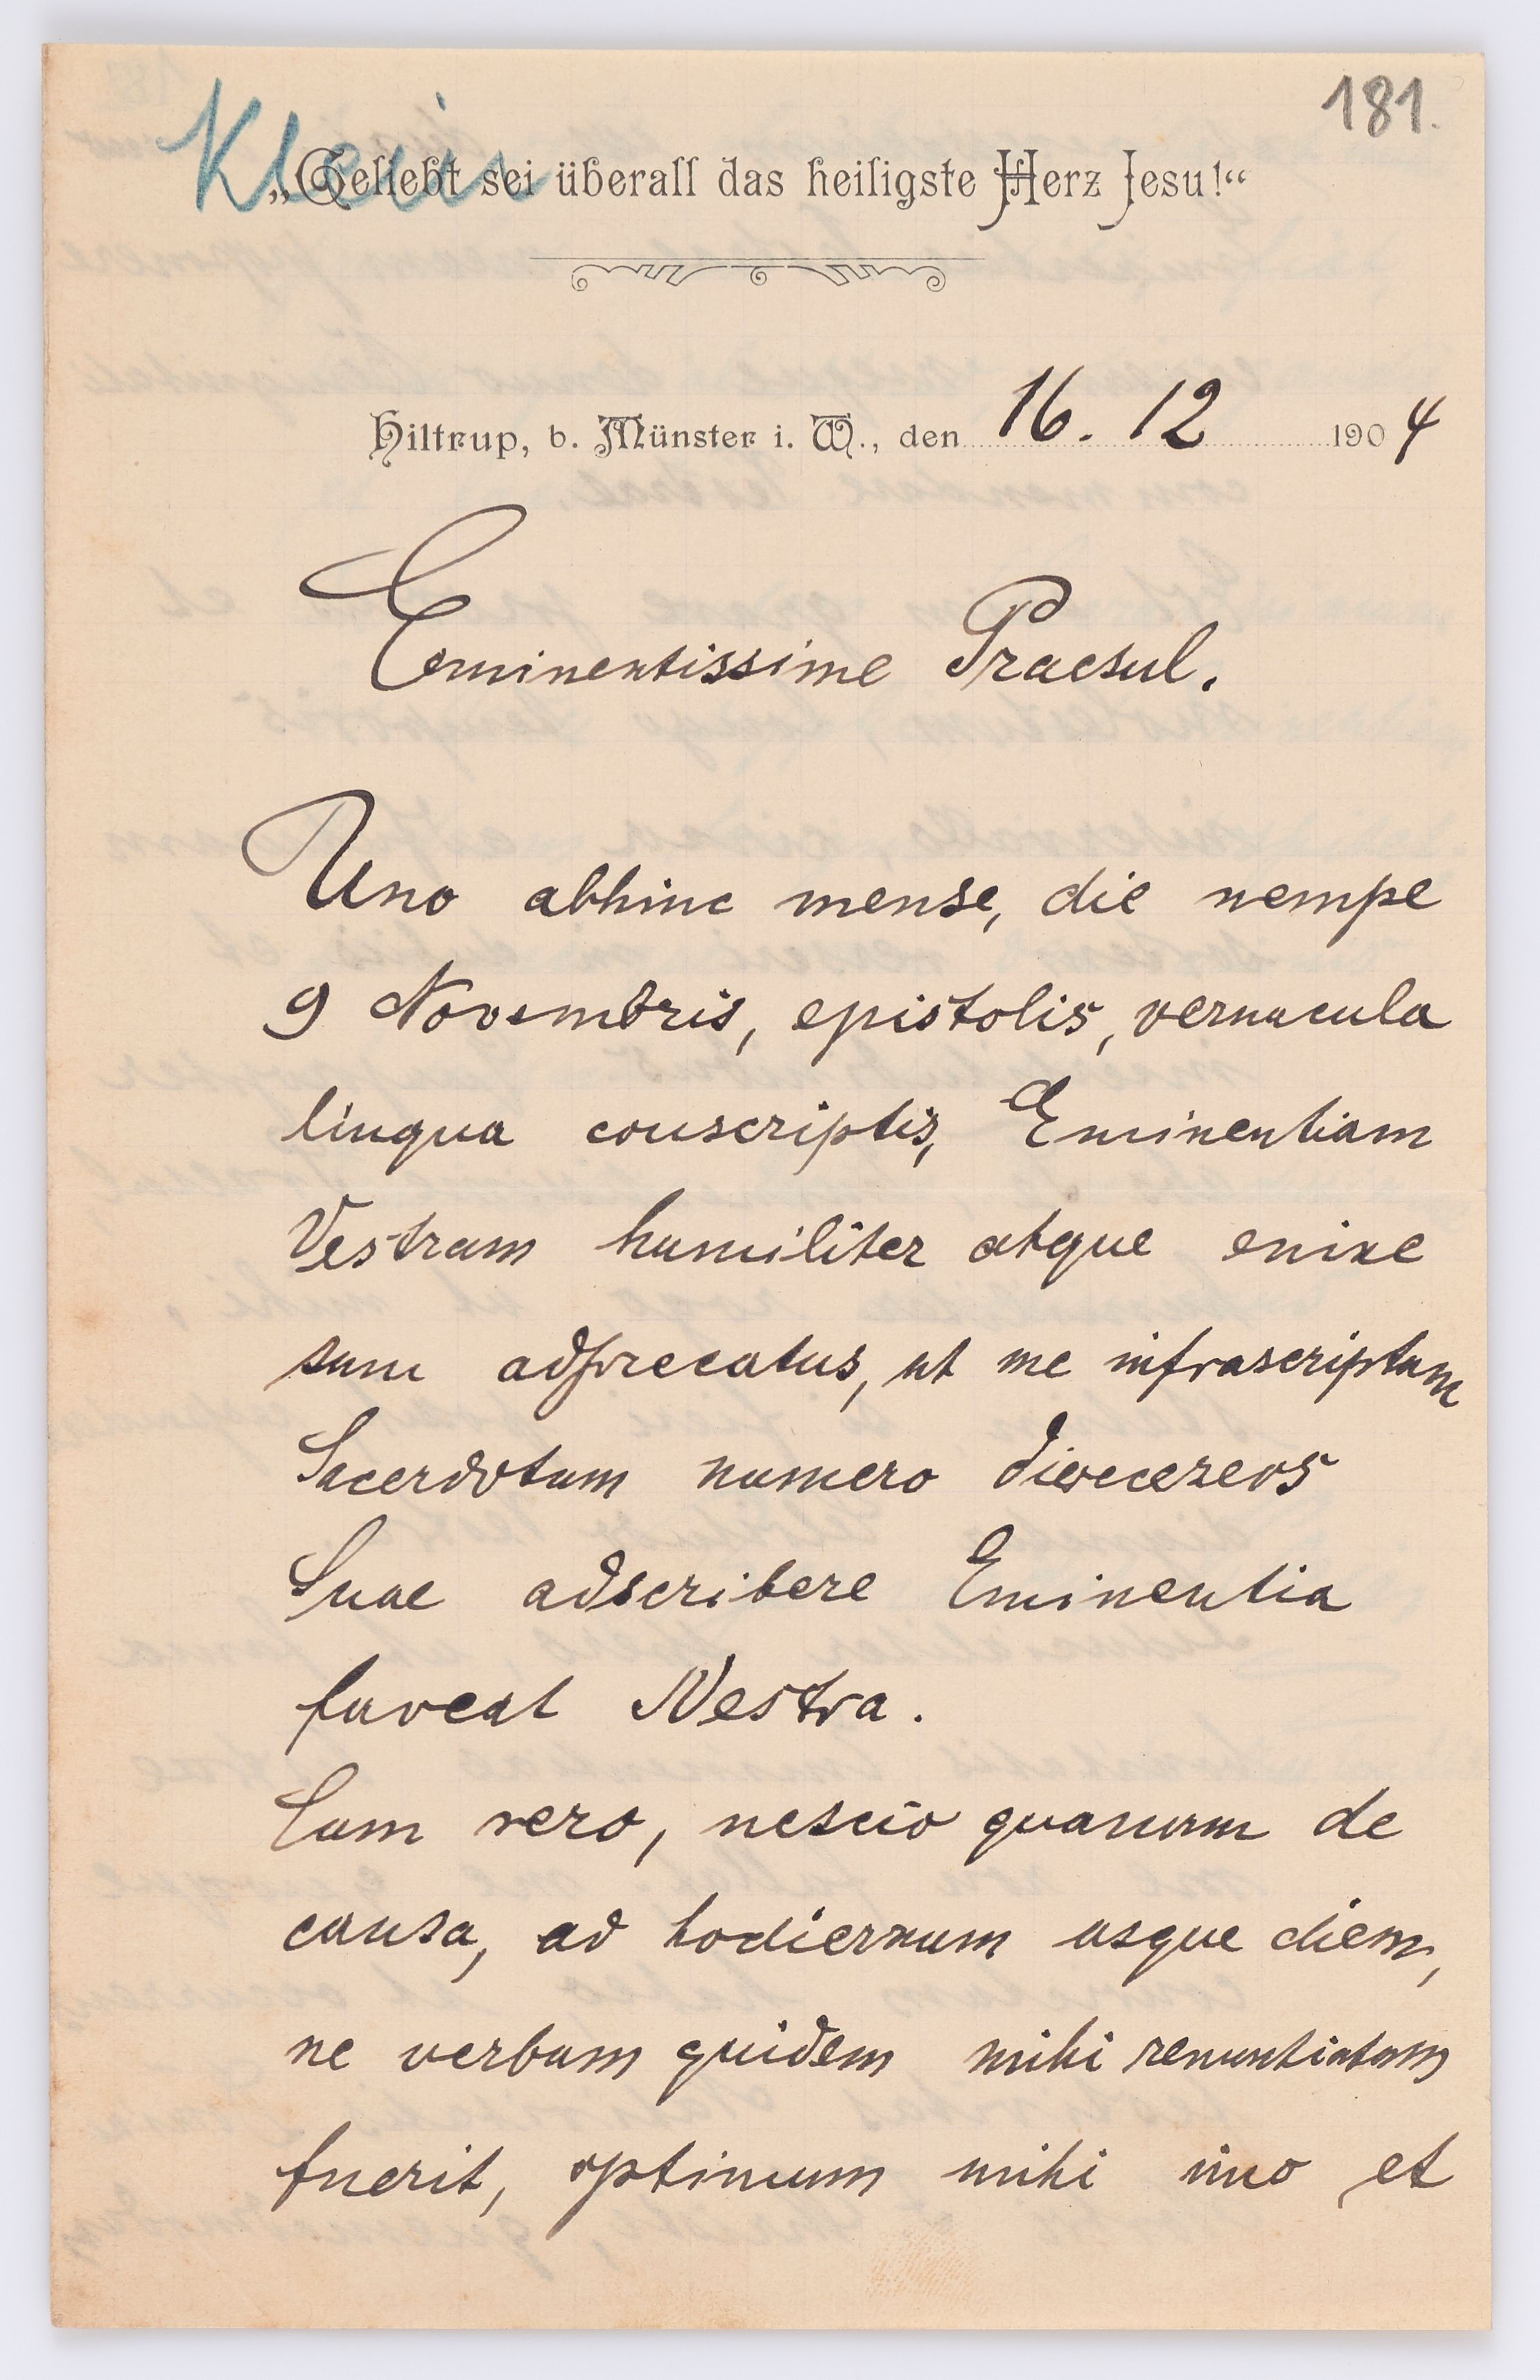 Klein
181.
„Geliebt sei überall das heiligste Herz Jesu!“
Hiltrup, b. Münster i. W., den 16. 12 1904
Eminentissime Praesul.
Uno abhinc mense, die nempe
9 Novembris, epistolis, vernacula
lingua conscriptis, Eminentiam
Vestram humiliter atque enixe
sum adprecatus, ut me infrascriptum
Sacerdotum numero dioeceseos
Suae adscribere Eminentia
faveat Vestra.
Cum vero, nescio quanam de
causa, ad hodiernum usque diem,
ne verbum quidem mihi renuntiatum
fuerit, optimum mihi imo et